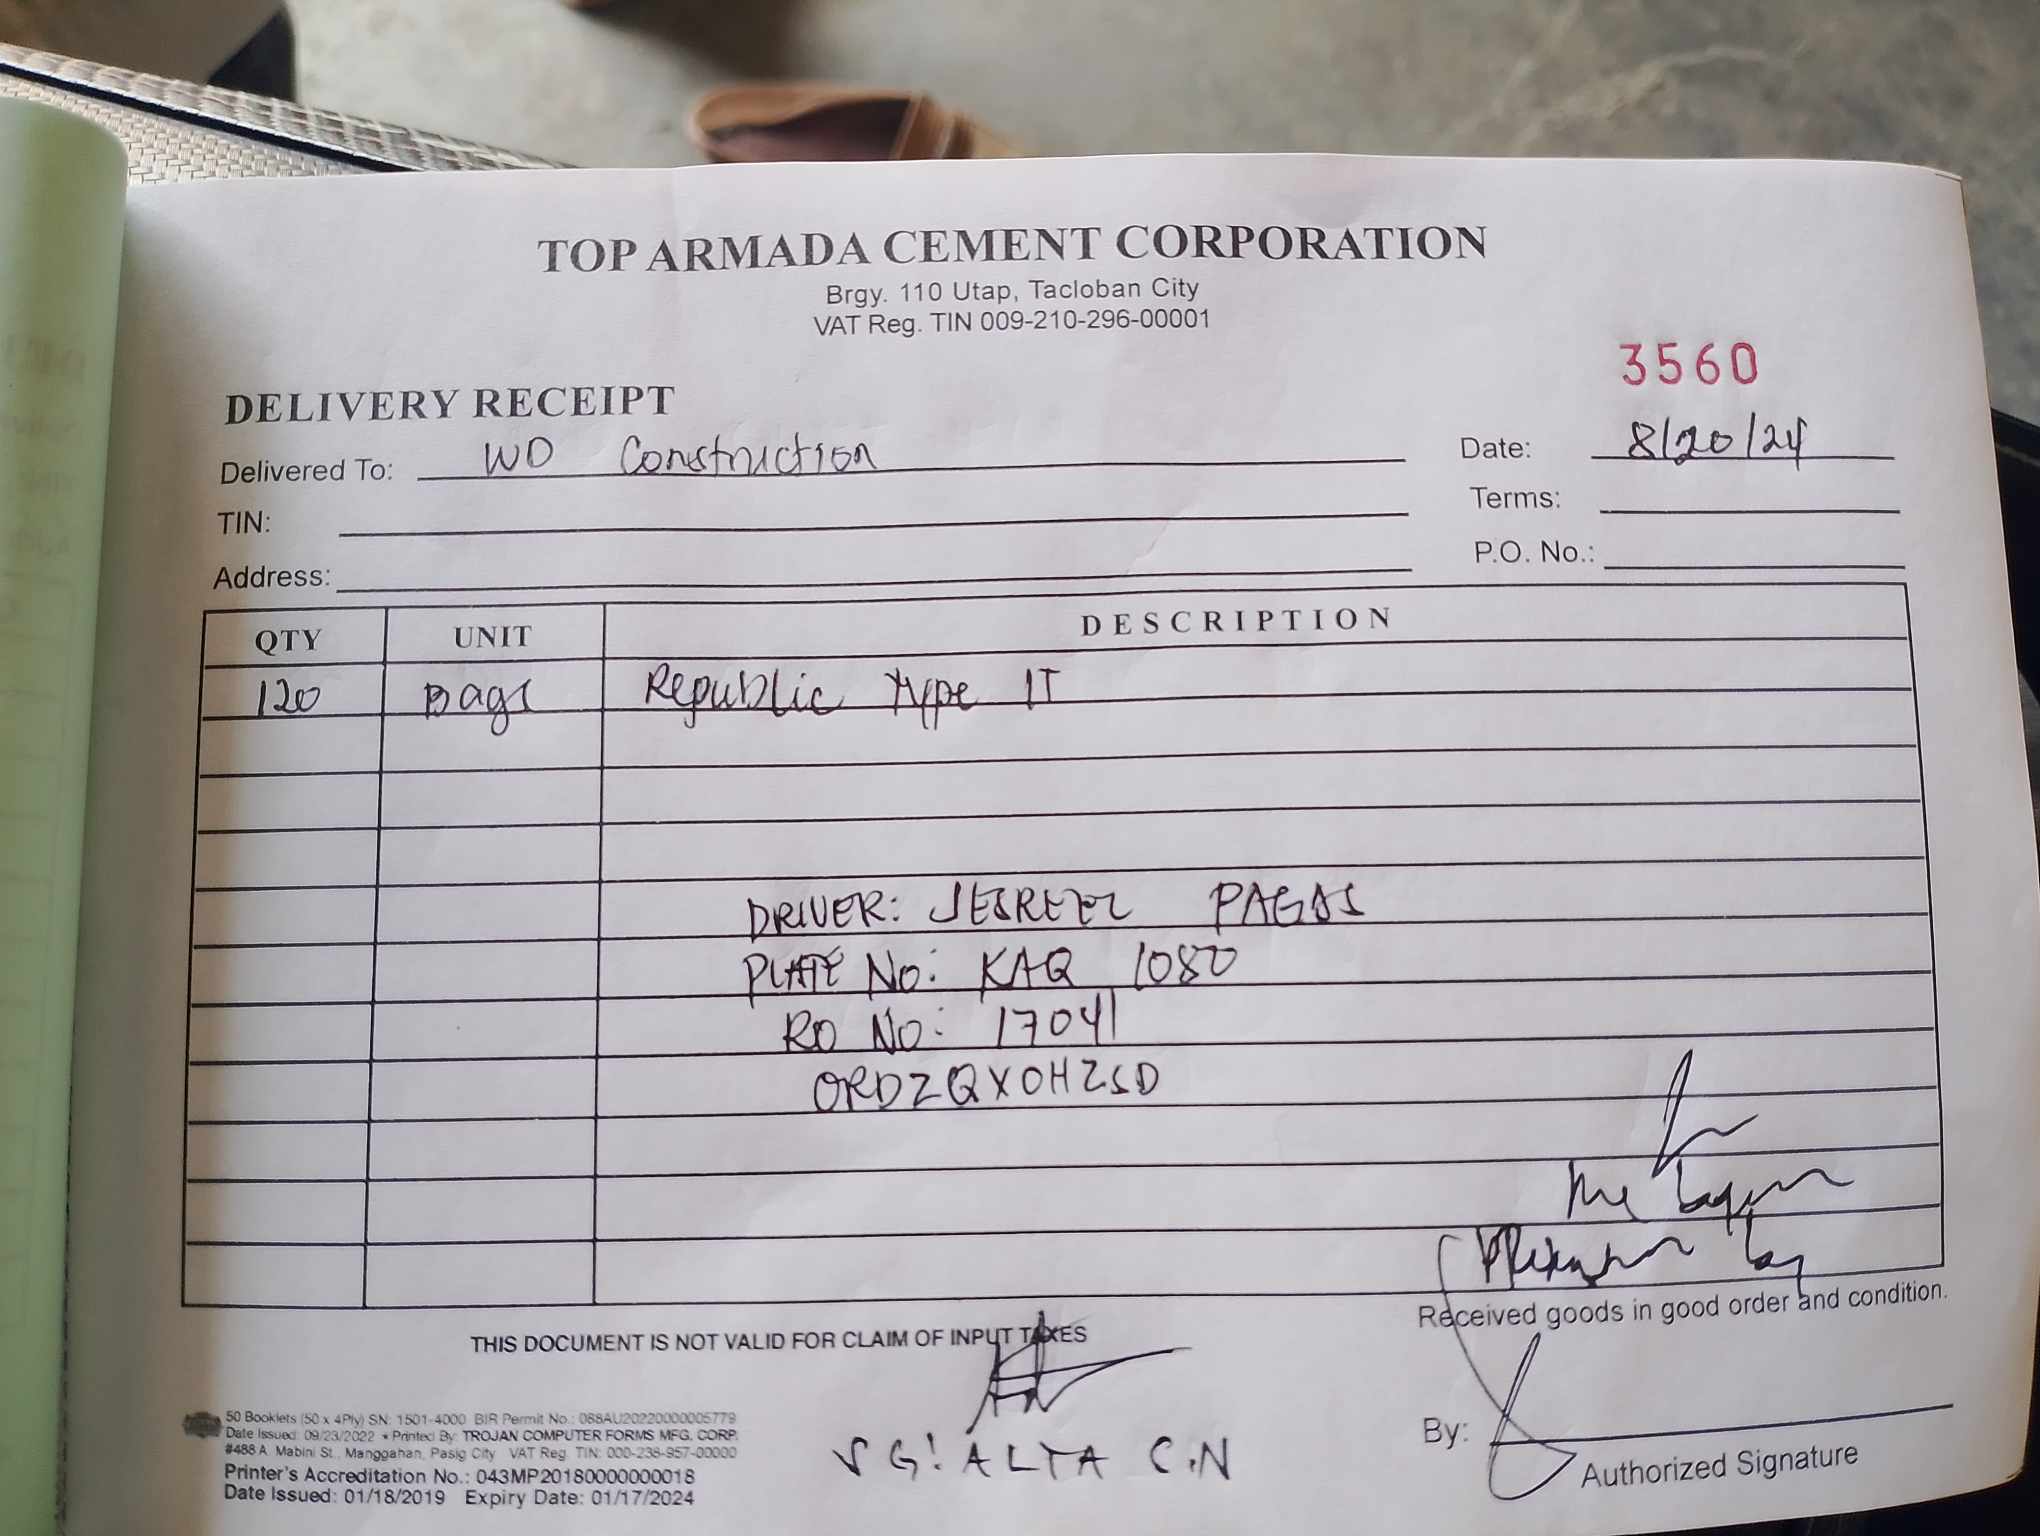 TOP ARMADA CEMENT CORPORATION
Brgy. 110 Utap, Tacloban City
VAT Reg. TIN 009-210-296-00001
3560
DELIVERY RECEIPT
Delivered To: WD Construction
Date: 8/20/24
TIN:
Terms:
Address:
P.O. No.:
QTY UNIT DESCRIPTION
120 Bags Republic Type IT
DRIVER: JESREEL PAGAS
PLATE No: KAQ 1080
RO No: 17041
ORDZQXOHZSD
Received goods in good order and condition.
THIS DOCUMENT IS NOT VALID FOR CLAIM OF INPUT TAXES
50 Booklets (50 x 4Ply) SN: 1501-4000 BIR Permit No.: 088AU20220000005779
Date Issued: 09/23/2022 • Printed By: TROJAN COMPUTER FORMS MFG. CORP.
#488 A. Mabini St., Manggahan, Pasig City VAT Reg. TIN: 000-238-957-00000
Printer's Accreditation No.: 043MP20180000000018
Date Issued: 01/18/2019 Expiry Date: 01/17/2024
SG! ALTA C.N
By:
Authorized Signature